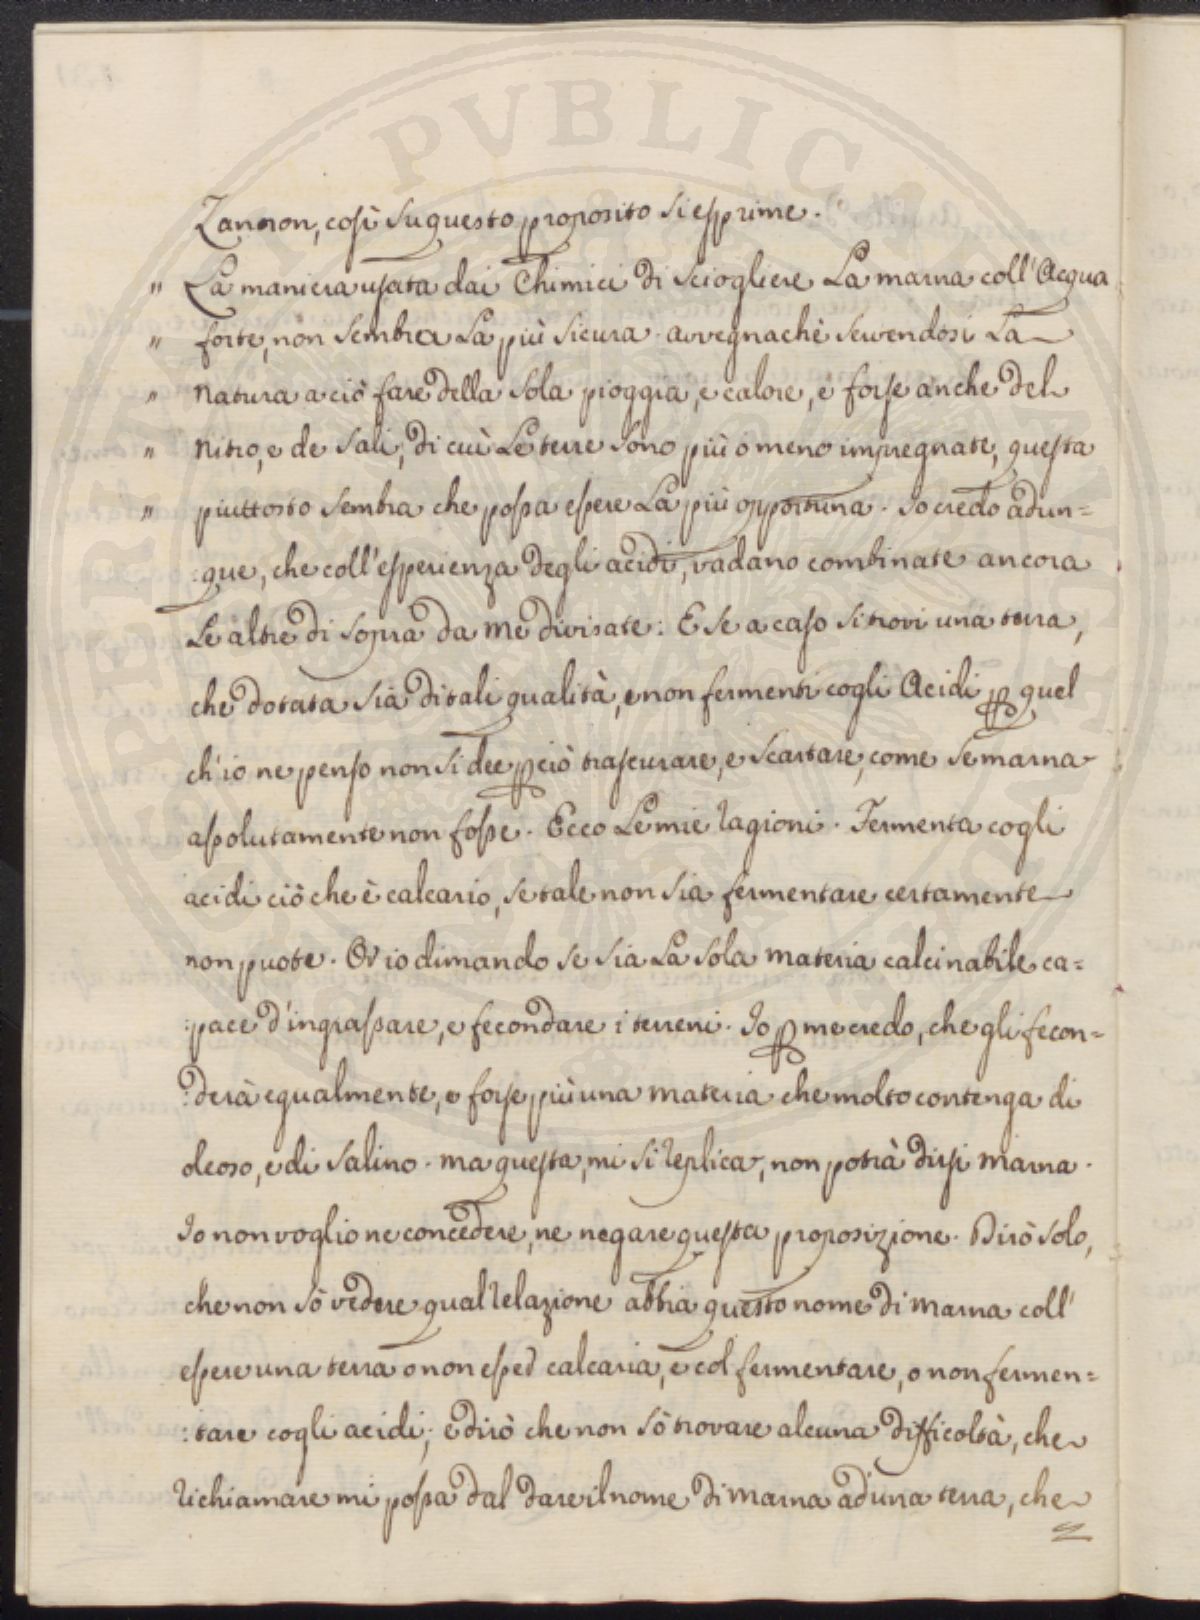 Zannon, così su questo proposito si esprime.
" La maniera usata dai Chimici di sciogliere La marna coll' Acqua
" forte, non sembra La più sicura. avvegnachè servendosi La
" natura a ciò fare della sola pioggia, e calore, e forse anche del
" Nitro, e de Sali, di cui Le terre sono più o meno impregnate, questa
" piuttosto sembra che possa essere La più opportuna. Io credo adun=
:que, che coll' esperienza degli acidi, vadano combinate ancora
Le altre di sopra da me divisate: E se a caso si trovi una terra,
che dotata sia di tali qualità, e non fermenti cogli Acidi p quel
ch'io ne penso non si dee p ciò trascurare, e scartare, come se marna
assolutamente non fosse. Ecco Le mie ragioni. Fermenta cogli
acidi ciò che è calcario, se tale non sia fermentare certamente
non puote. Or io dimando se sia La sola materia calcinabile ca=
:pace d'ingrassare, e fecondare i terreni. Io p me credo, che gli fecon=
:derà egualmente, e forse più una materia che molto contenga di
oleoso, e di salino. ma questa, mi si replica, non potrà dirsi marna.
Io non voglio ne concedere, ne negare questa proposizione. Dirò solo,
che non sò vedere qual relazione abbia questo nome di marna coll'
essere una terra o non esser calcaria, e col fermentare, o non fermen=
:tare cogli acidi; e dirò che non sò trovare alcuna difficoltà, che
richiamare mi possa dal dare il nome di marna ad una terra, che
PERIN PUBLICAE